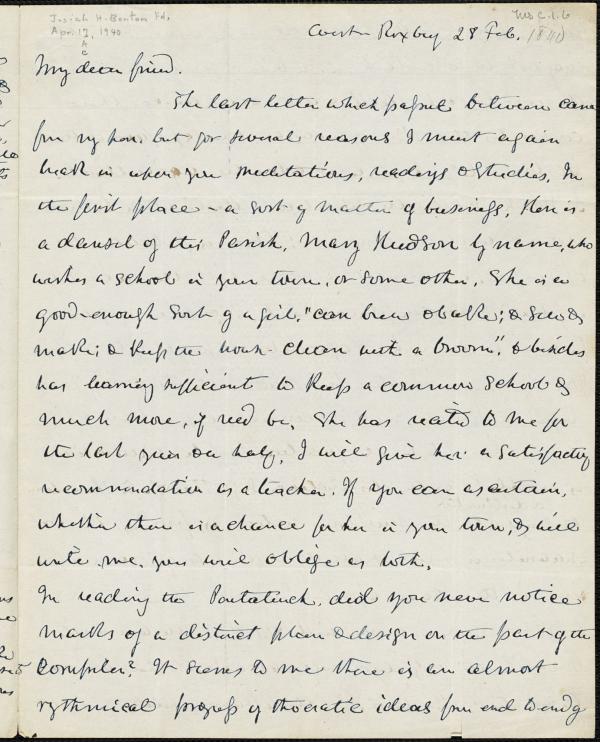 Josiah H. Benton Fd.
Apr. 17, 1940
A
C
Ms C.1.6
West Roxbury 28 Feb. (1840)
My dear friend.
The last letter which passed between came
from my pen. but for several reasons I must again
break in upon your meditations, readings & studies. In
the first place – a sort of matter of business. Here is
a damsel of this Parish, Mary Hudson by name, who
wishes a school in your town, or some other. She is a
good-enough sort of a girl, "can brew & bake; & sew &
make; & keep the house clean with a broom", & besides
has learning sufficient to keep a common school &
much more, if need be. She has recited to me for
the last year & a half, I will give her a satisfactory
recommendation as a teacher. If you can ascertain,
whether there is a chance for her in your town, & will
write me, you will oblige us both.
In reading the Pentateuch, did you never notice
marks of a distinct plan & design on the part of the
Compiler? It seems to me there is an almost
rythmical progress of theocratic ideas from end to end of